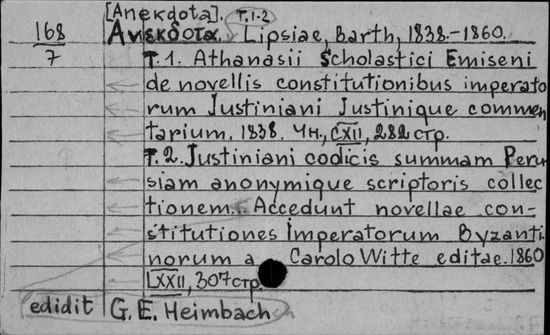 [Anekdota]. T.1-2
168 Ανεκδοτα. Lipsiae, Barth, 1838.-1860.
7 T.1. Athanasii Scholastici Emiseni
de novellis constitutionibus imperato
rum Justiniani Justinique commen
tarium. 1838. 4н., CXII, 282 стр.
T.2. Justiniani codicis summam Peru
siam anonymique scriptoris collec
tionem. Accedunt novellae con-
stitutiones imperatorum Byzanti
norum a Carolo Witte editae. 1860
LXXII, 307 стр.
edidit G. E. Heimbach